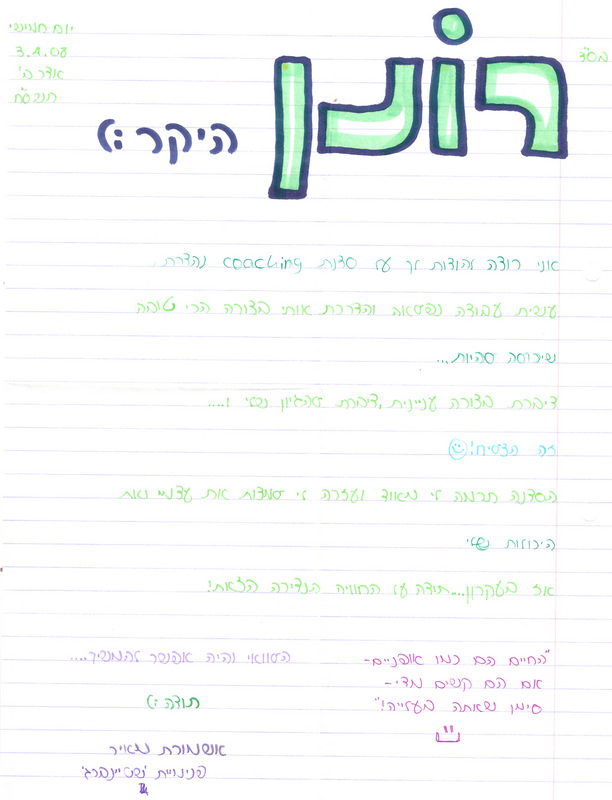 בס"ד
יום חמישי
3.4.08
אדר ב'
תשס"ח
רונן
היקר :)
אני רוצה להודות לך על סדנת coaching נהדרת.
עשית עבודה נפלאה והדרכת אותי בצורה הכי טובה
שיכולה להיות...
דיברת בצורה עניינית, דיברת להגיון שלי ו....
זה הצליח!
הסדנה תרמה לי מאוד ועזרה לי למצות את עצמי ואת
היכולות שלי
אז בעקרון...תודה על החוויה הזאת!
"החיים הם כמו אופניים-
אם הם קשים מדי-
סימן שאתה בעלייה!"
הלוואי והיה אפשר להמשיך....
תודה :)
אשמורת מאיר
פנימיית 'שטיינברג'